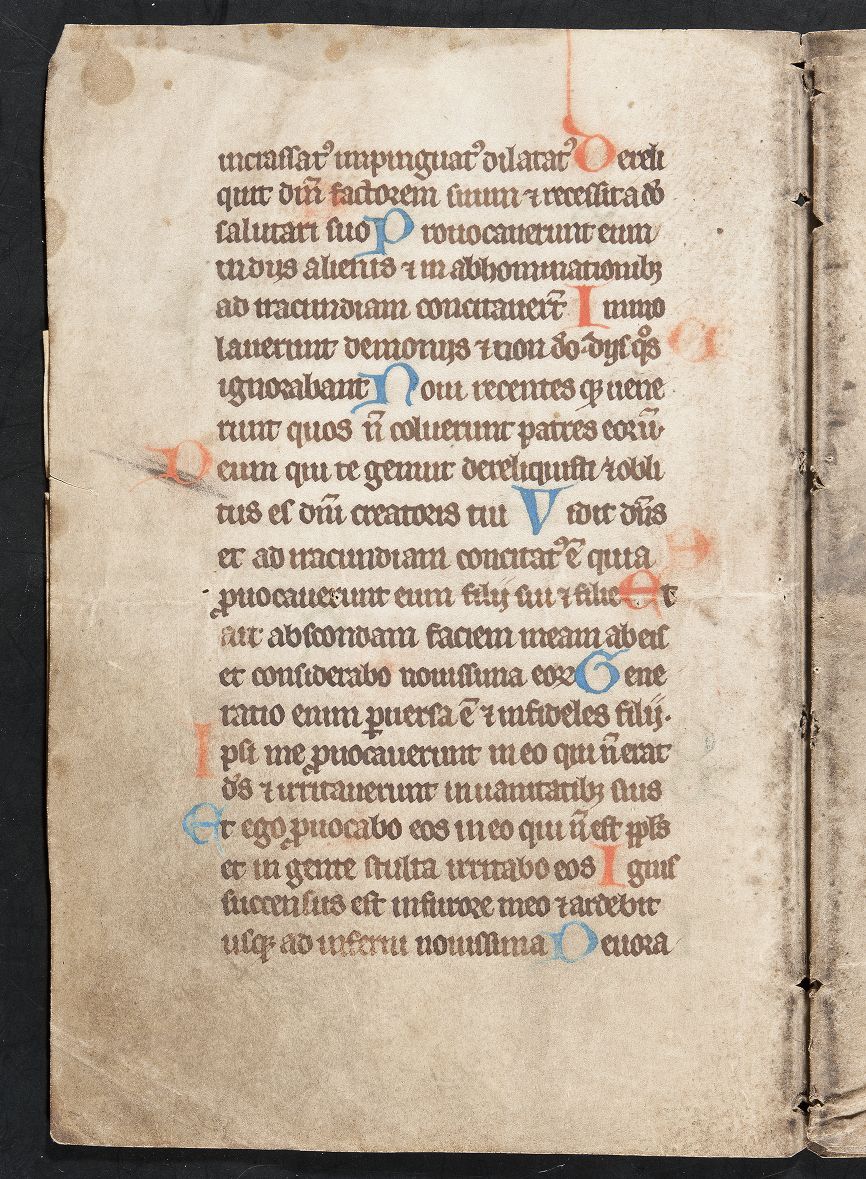 incrassatꝰ impinguatꝰ dilatatꝰ Dereli
quit dm̄ factorem suum ⁊ recessit a dō
salutari suo Prouocauerunt eum
in dijs alienis ⁊ in abhominationibꝫ
ad iracundiam concitauer̄t Immo
lauerunt demonijs ⁊ non dō dijs qͦs
ignorabant Noui recentes qꝫ uene
runt quos n̄ coluerunt patres eorū
Deum qui te genuit dereliquisti ⁊ obli
tus es dn̄i creatoris tui Vidit dn̄s
et ad iracundiam concitatꝰ ē quia
ꝓuocauerunt eum filij sui ⁊ filie Et
ait abscondam faciem meam ab eis
et considerabo nouissima eoꝝ Gene
ratio enim ꝑuersa ē ⁊ infideles filij.
Ipsi me ꝓuocauerunt in eo qui n̄ erat
ds̄ ⁊ irritauerunt in uanitatibꝫ suis
Et ego ꝓuocabo eos in eo qui n̄ est ppl̄s
et in gente stulta irritabo eos Ignis
succensus est in furore meo ⁊ ardebit
usqꝫ ad inferni nouissima Deuora